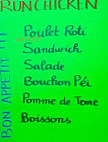 RUN CHICKEN
Poulet Roti
Sandwich
Salade
Bouchon Péi
Pomme de Terre
Boissons
BON APPETIT !!!